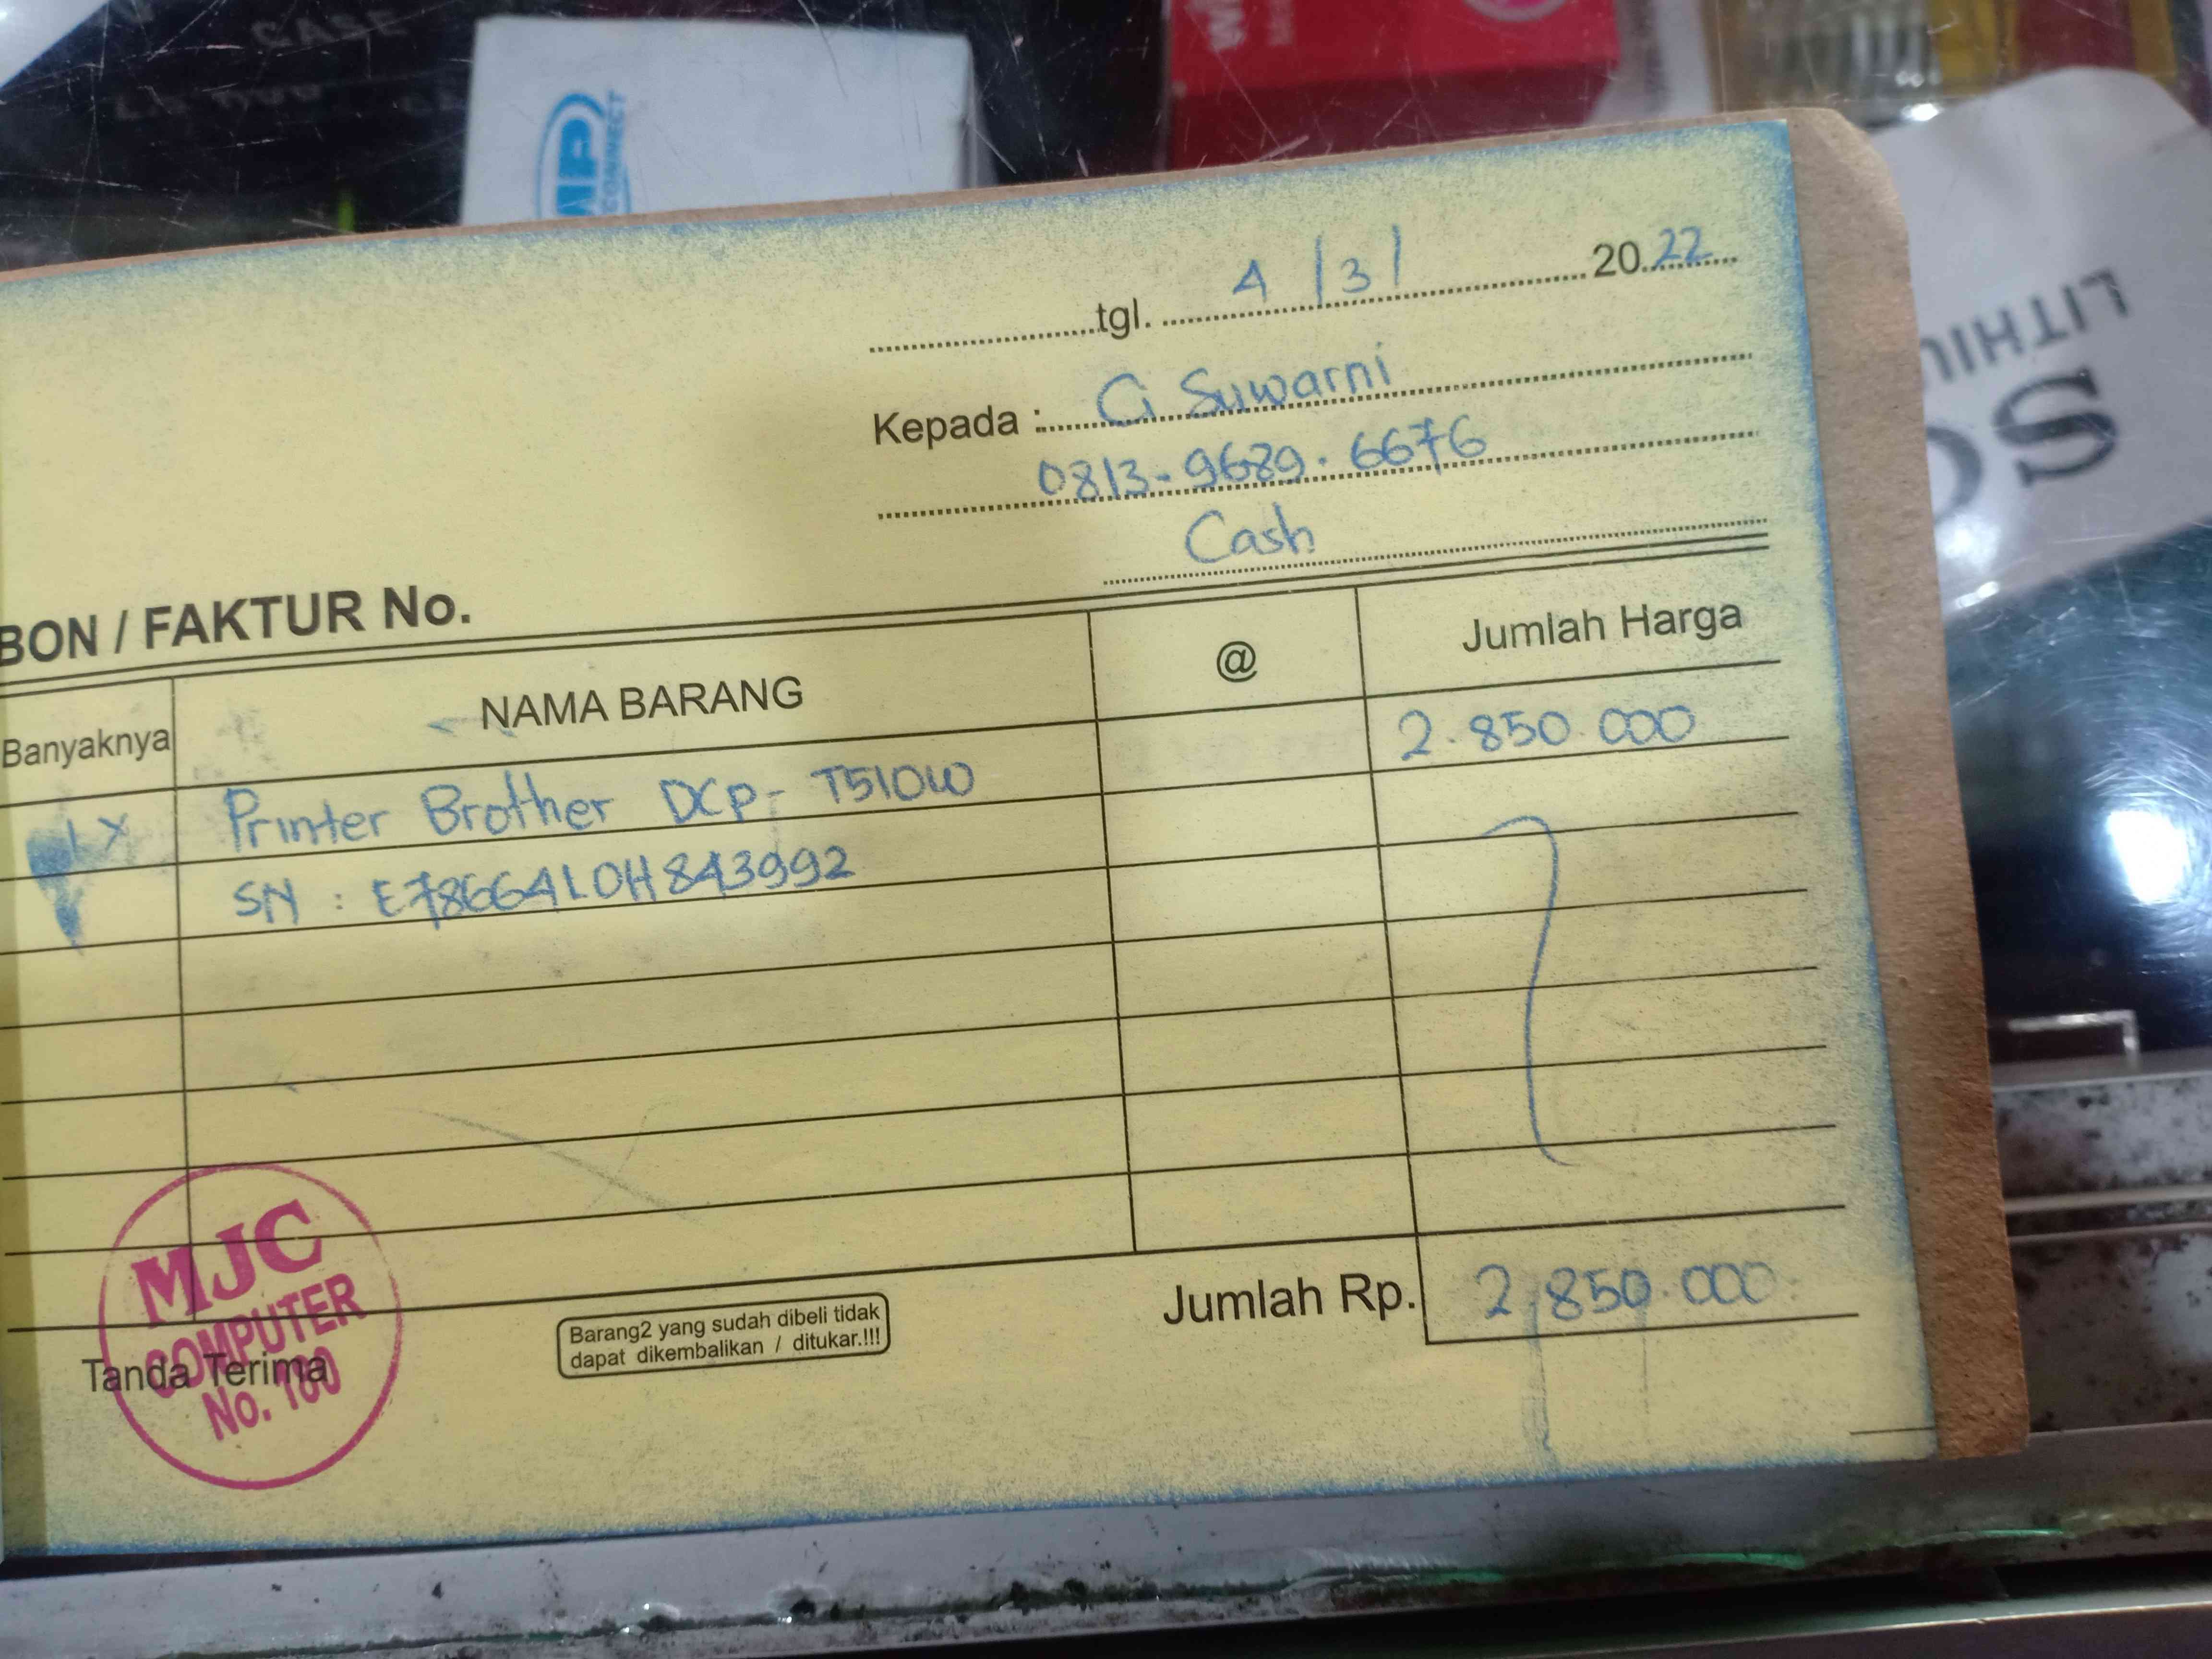 CASE
MP
CONNECT
LITHIU
SO
tgl. 4/3/ 2022
Kepada : Ci Suwarni
0813-9689.6676
Cash
BON / FAKTUR No.
Banyaknya NAMA BARANG @ Jumlah Harga
1x Printer Brother DCP-T510W 2.850.000
SN : E78664L0H843992
Jumlah Rp. 2.850.000
Barang2 yang sudah dibeli tidak
dapat dikembalikan / ditukar.!!!
Tanda Terima
MJC
COMPUTER
No. 100